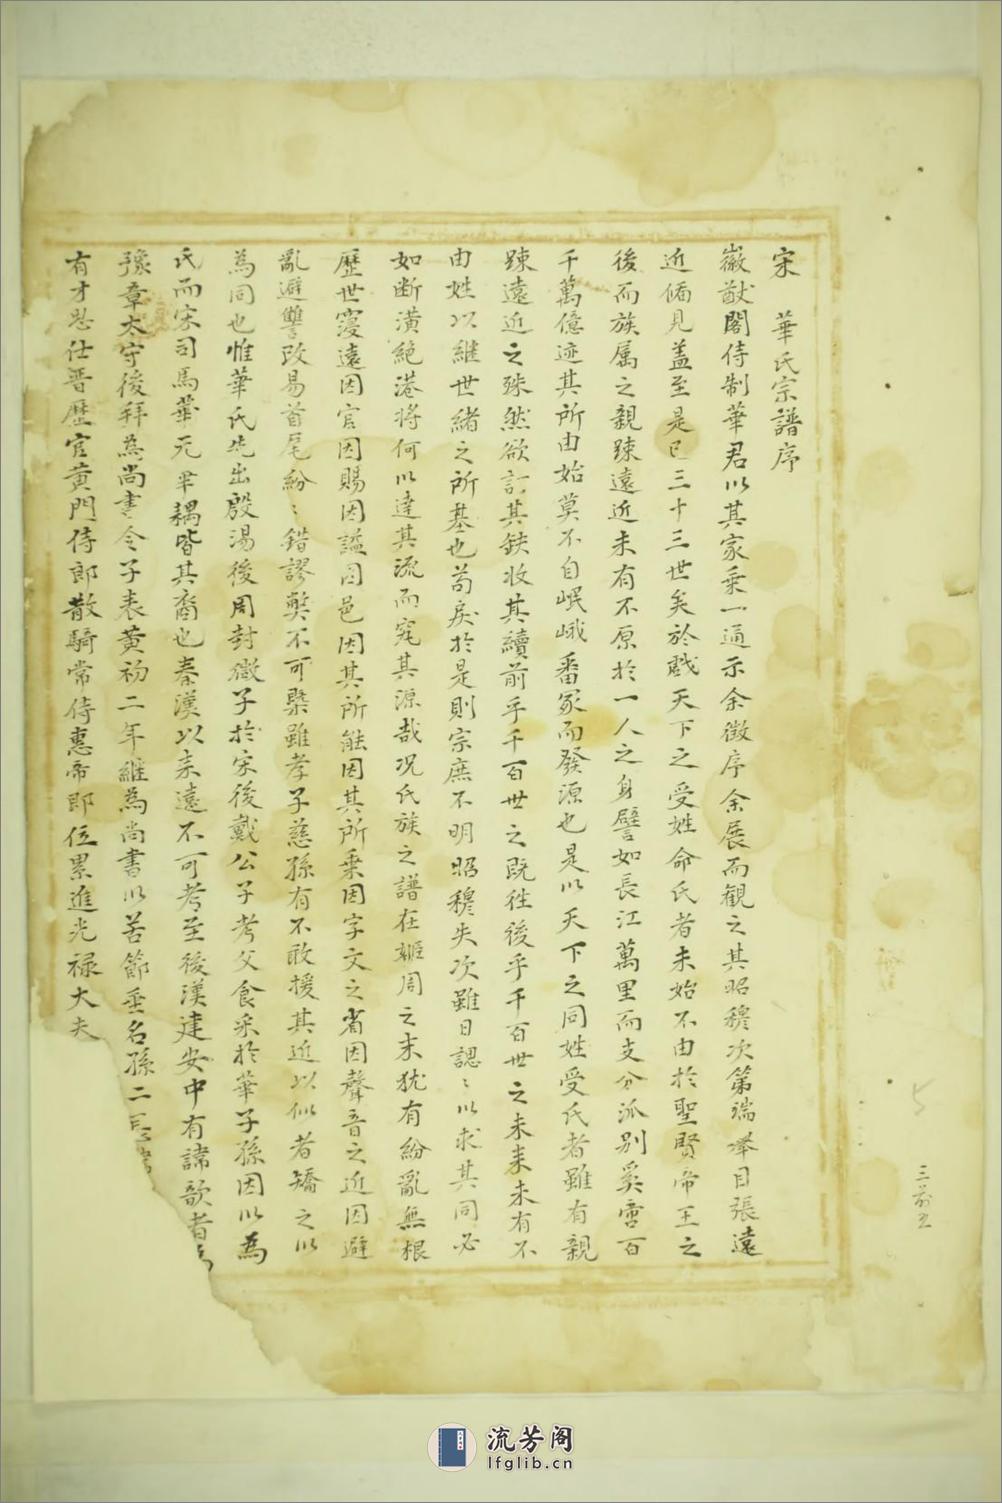 宋 華氏宗譜序
徽猷閣侍制華君以其家乘一通示余徵序余展而観之其昭穆次第端舉目張遠
近俻見盖至是已三十三世矣於戲天下之受姓命氏者未始不由於聖賢帝王之
後而族属之親踈遠近未有不原於一人之身譬如長江萬里而支分派别奚啻百
千萬億迹其所由始莫不自岷峨番冢而發源也是以天下之同姓受氏者雖有親
踈遠近之殊然欲訂其鈌收其續前乎千百世之既徃後乎千百世之未来未有不
由姓以継世緒之所基也苟戾於是則宗庶不明昭穆失次雖日認〻以求其同必
如断潢絶港将何以達其流而䆒其源哉况氏族之譜在姬周之末犹有紛亂無根
歴世寖遠因官因賜因諡因邑因其所能因其所乗因字文之省因聲音之近因避
亂避讐改易首尾紛〻錯謬槩不可槩雖孝子慈孫有不敢援其近以似者矯之以
為同也惟華氏先出殷湯後周封微子於宋後戴公子考父食采於華子孫因以為
氏而宋司馬華元華耦皆其裔也秦漢以来遠不可考至後漢建安中有諱歆者為
豫章太守後拜為尚書令子表黄初二年継為尚書以苦節垂名孫二
有才思仕晋歴官黄門侍郎散騎常侍惠帝即位累進光禄大夫
5
流芳阁
lfglib.cn